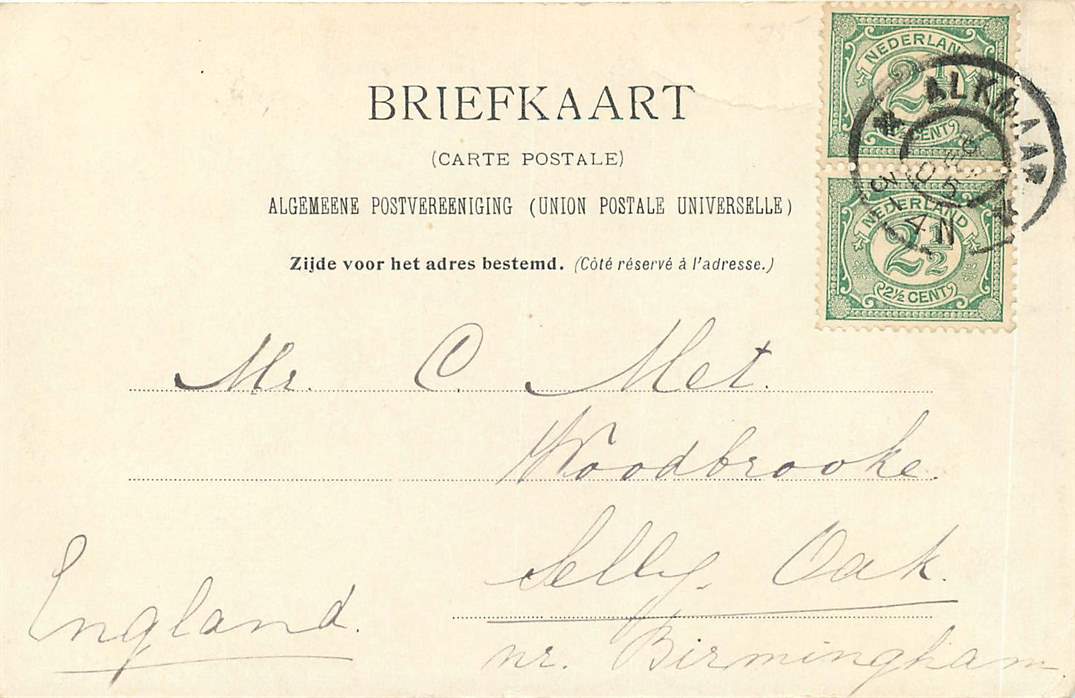 BRIEFKAART
(CARTE POSTALE)
ALGEMEENE POSTVEREENIGING (UNION POSTALE UNIVERSELLE)
Zijde voor het adres bestemd. (Côté réservé à l'adresse.)
NEDERLAND
2½
2½ CENT
ALKMAAR
05
4 N
NEDERLAND
2½
2½ CENT
Mr. C. Met.
Woodbrooke.
Selly. Oak.
England.
nr. Birmingham